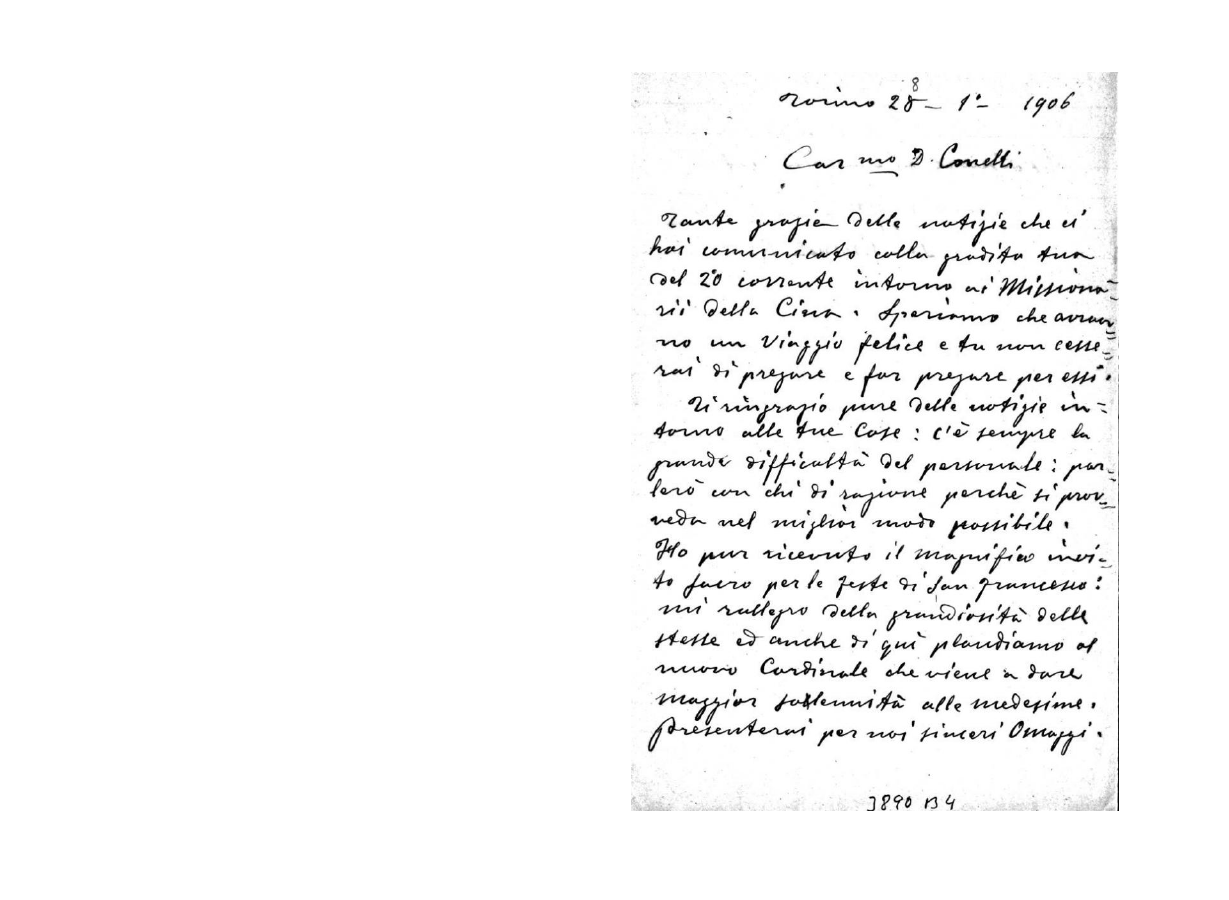 8
Torino 28 - 1° - 1906
Car mo D. Conelli
Tante grazie delle notizie che ci
hai comunicato colla gradita tua
del 20 corrente intorno ai Missiona=
rii della Cina. Speriamo che avran=
no un viaggio felice e tu non cesse=
rai di pregare e far pregare per essi.
Ti ringrazio pure delle notizie in=
torno alle tue Case: c'è sempre la
grande difficoltà del personale: par=
lerò con chi di ragione perchè si prov=
veda nel miglior modo possibile.
Ho pur ricevuto il magnifico invi=
to sacro per le feste di San Francesco:
mi rallegro della grandiosità delle
stesse ed anche di qui plaudiamo al
nuovo Cardinale che viene a dare
maggior sollennità alle medesime.
Presenterai per noi sinceri Omaggi.
3890 B4